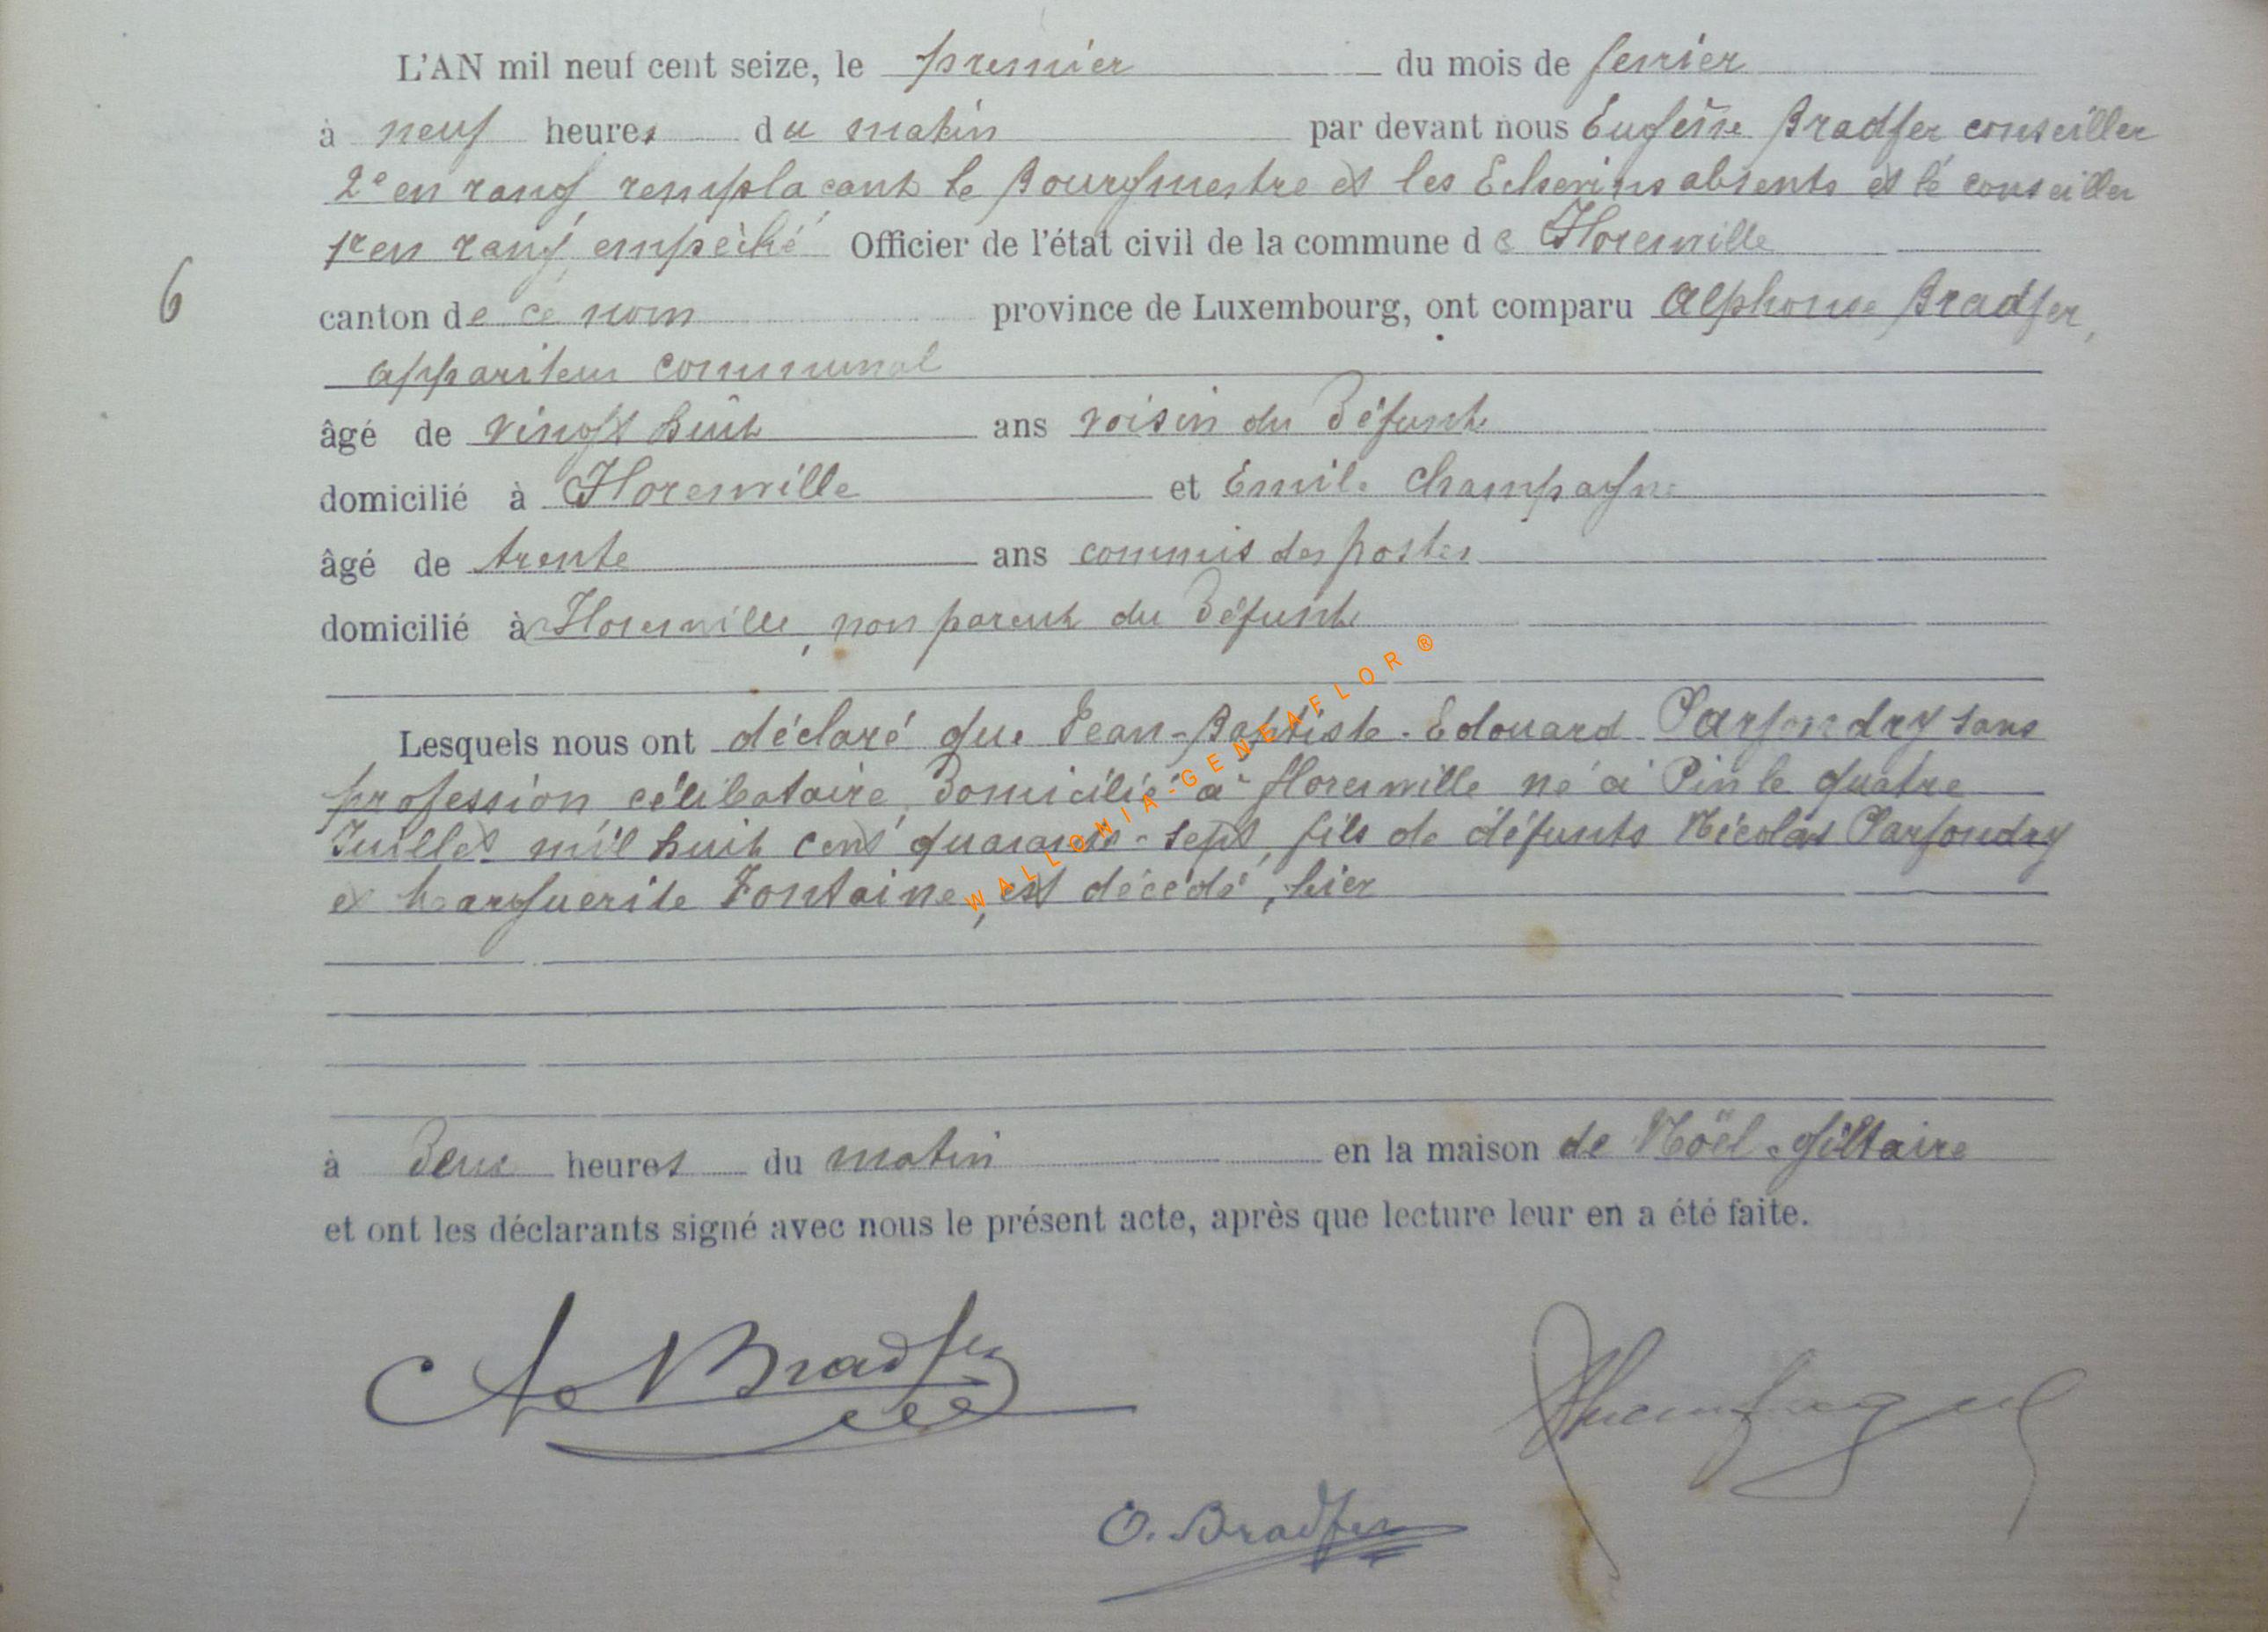 L'AN mil neuf cent seize, le premier du mois de fevrier
à neuf heures du matin par devant nous Eugène Bradfer conseiller
2e en rang remplacant le Bourgmestre et les Echevins absents et le conseiller
1er en rang, empêché Officier de l'état civil de la commune de Florenville
6
canton de ce nom province de Luxembourg, ont comparu Alphonse Bradfer,
appariteur communal
âgé de vingt huit ans voisin du défunt
domicilié à Florenville et Emile Champagne
âgé de trente ans commis des postes
domicilié à Florenville, non parent du défunt
Lesquels nous ont déclaré que Jean-Baptiste-Edouard Parfondry sans
profession, célibataire, domicilié à Florenville né à Pin le quatre
Juillet mil huit cent quarante-sept, fils de défunts Nicolas Parfondry
et Marguerite Fontaine, est décédé, hier
WALLONIA-GENEAFLOR®
à deux heures du matin en la maison de Noël-Giltaire
et ont les déclarants signé avec nous le présent acte, après que lecture leur en a été faite.
Bradfer
Champagne
Bradfer